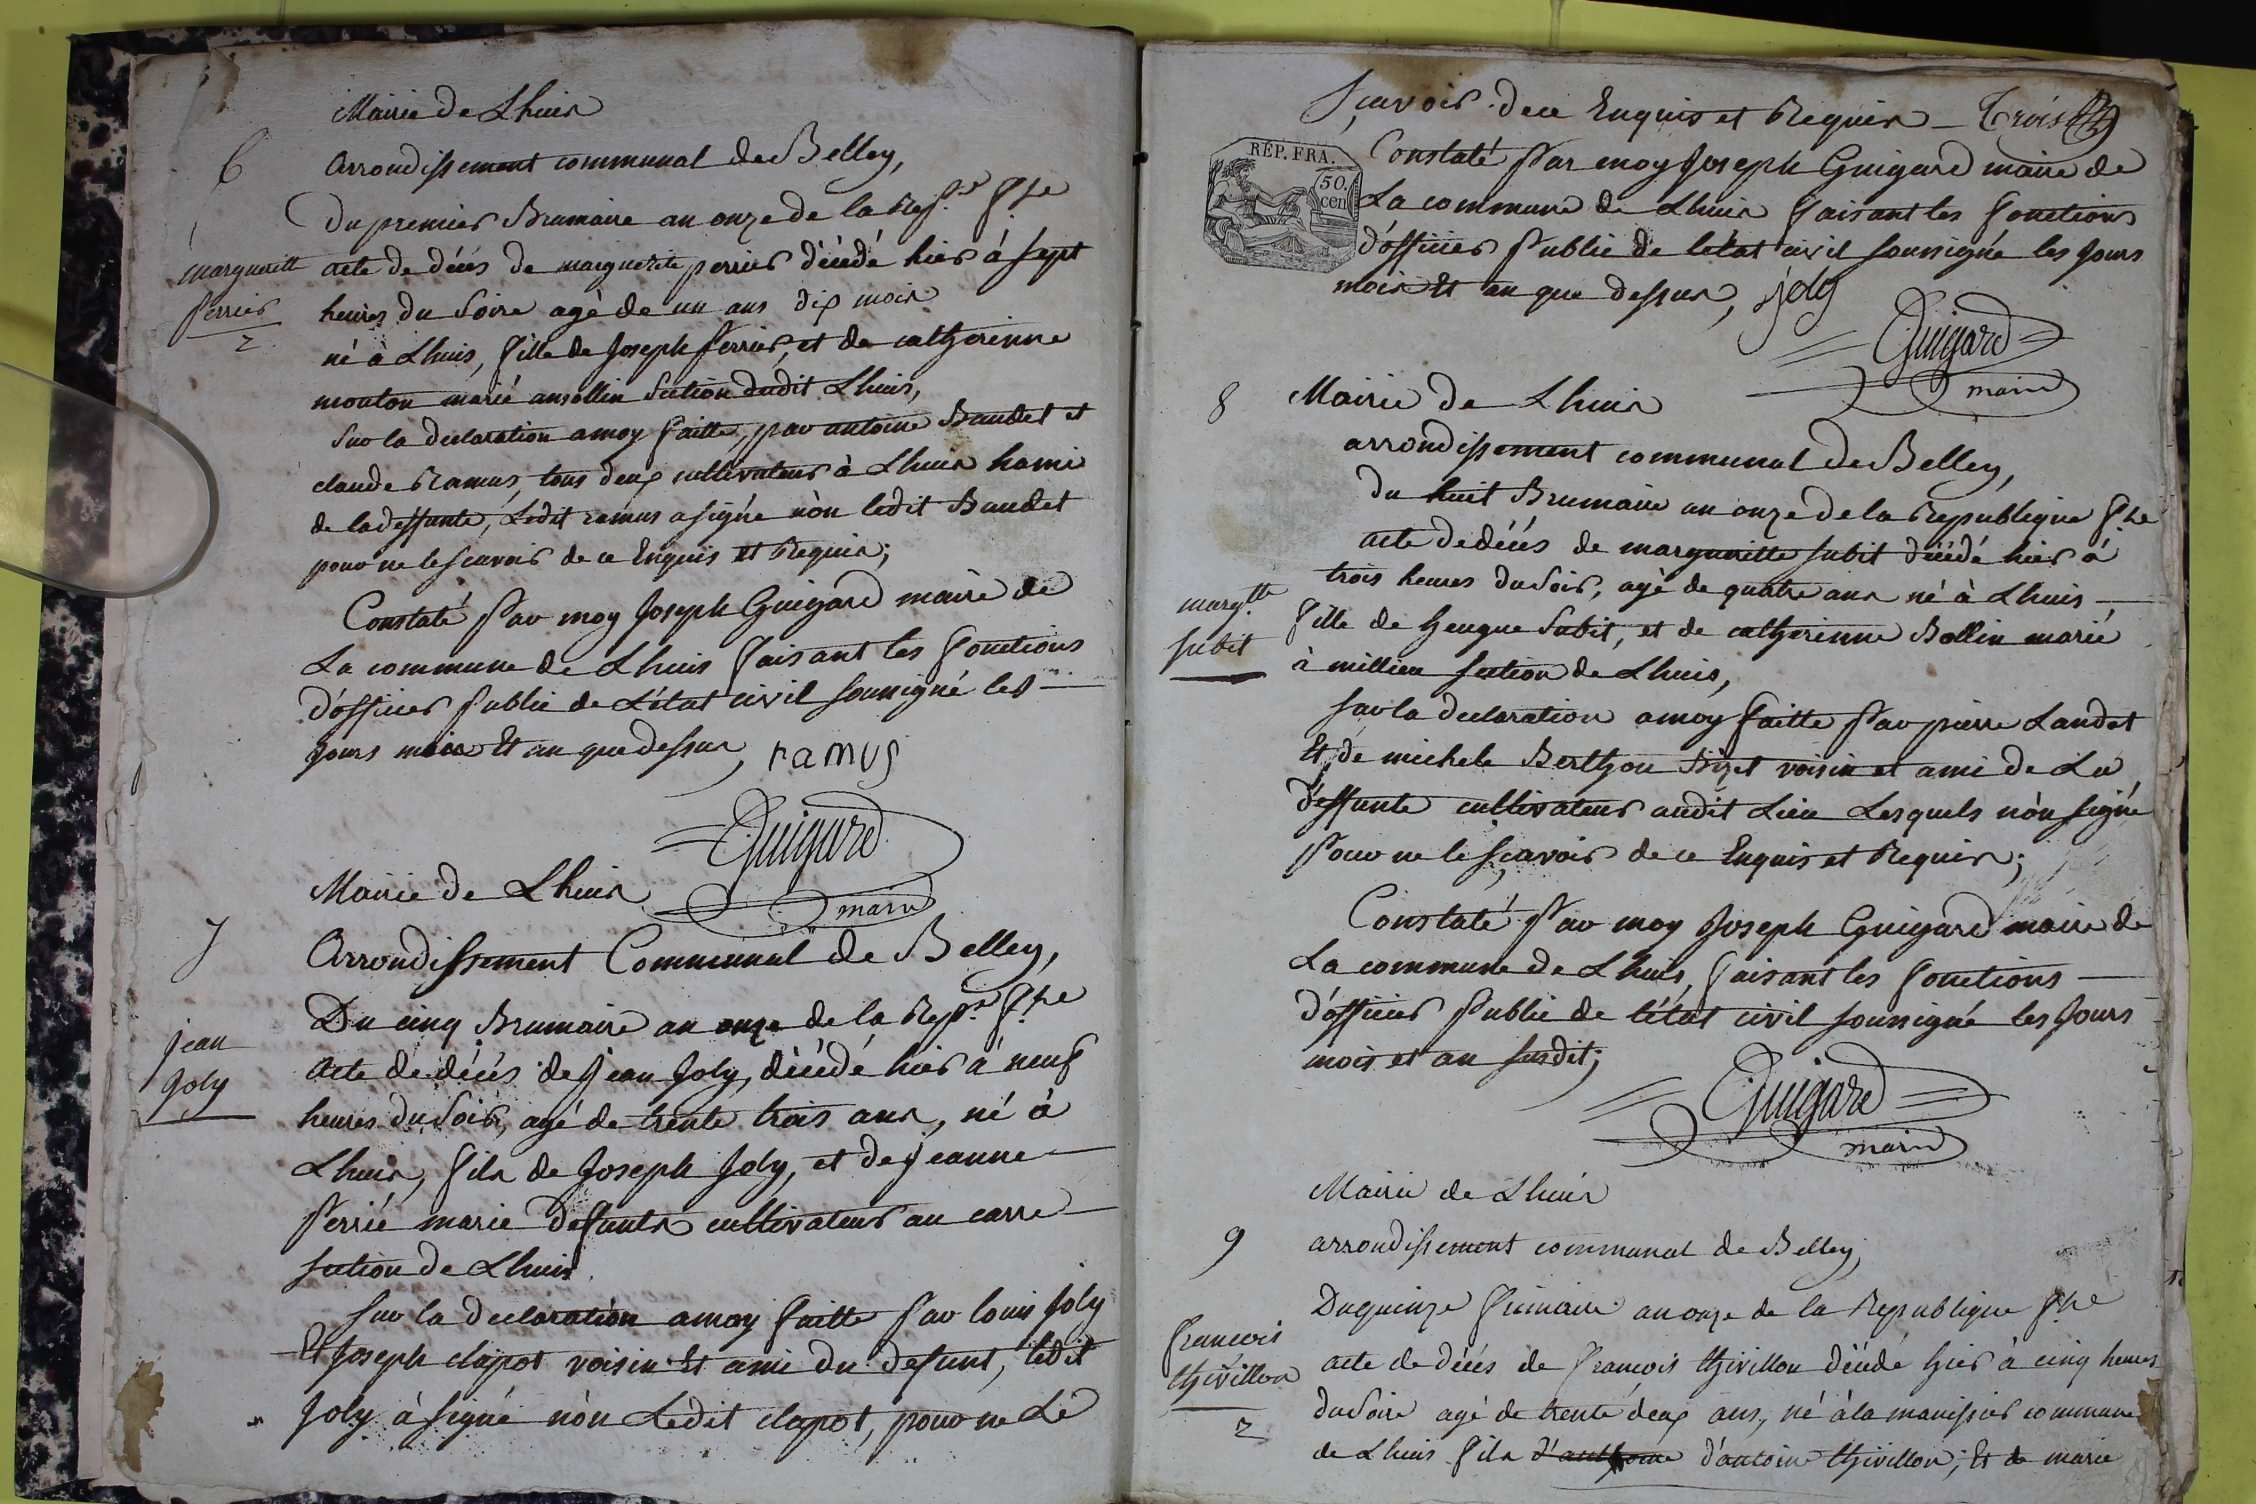 Mairie de Lhuis
6
arrondissement communal de Belley,
Du premier Brumaire an onze de la Rep.
margueritt
perrier
2
acte de décés de marguerite perrier décédé hier à sept
heures du Soire agé de un ans dix mois
né à Lhuis, fille de Joseph perrier, et de catherinne
mouton marié ansollin Section dudit Lhuis,
Sur la declaration amoy faitte, par antoine Baudet et
claude Ramus, tous deux cultivateurs à Lhuis hami
de la deffunte, Ledit ramus a signé nòn ledit Baudet
pour ne le scavoir de ce Enquis et Requis;
Constaté Par moy Joseph Guigard maire de
La commune de Lhuis faisant les fonctions
d'officier Public de L'état civil soussigné les
Jours mois Et an que dessus, ramus
Guigard
maire
Mairie de Lhuis
7
Arrondissement Communal de Belley,
Du cinq Brumaire an onze de la Rep.
jean
Joly
Acte de décés de Jean Joly, décédé hier à neuf
heures du Soir, agé de trente trois ans, né à
Lhuis, fils de Joseph Joly, et de Jeanne
Perrié marié defunts cultivateurs au carre
section de Lhuis
Sur la declaration amoy faitte Par louis Joly
Et Joseph clapot voisin Et ami du defunt, ledit
Joly à signé nòn Ledit clapot, pour ne Le
Sçavoir de ce Enquis et Requis Trois
REP. FRA.
50.
cen
Constaté Par moy Joseph Guigard maire de
La commune de Lhuis faisant les fonctions
d'officier Public de l'état civil soussigné les Jours
mois Et an que dessus, joly
Guigard
maire
8
Mairie de Lhuis
arrondissement communal de Belley,
du huit Brumaire an onze de la Republique
acte de décés de margueritte Subit décédé hier à
trois heures du Soir, agé de quatre ans né à Lhuis
marg.tte
Subit
fille de heugue Subit, et de catherinne Bollin marié
à millieu section de Lhuis,
sur la declaration amoy faitte Par pierre Landet
Et de michele Berthou Bizet voisin et ami de La
deffunte cultivateurs audit Lieu Lesquels nòn signé
Pour ne le sçavoir de ce Enquis et Requis;
Constaté Par moy Joseph Guigard maire de
La commune de Lhuis, faisant les fonctions
d'officier Public de l'état civil soussigné les Jours
mois et an susdit;
Guigard
maire
Mairie de Lhuis
9
arrondissement communal de Belley,
Du quinze frimaire an onze de la Republique
francois
thivillon
2
acte de décés de francois thivillon décédé hier à cinq heures
du Soire agé de trente deux ans, né à la manissier commune
de Lhuis fils d'anthoine d'antoine thivillon, Et de marie